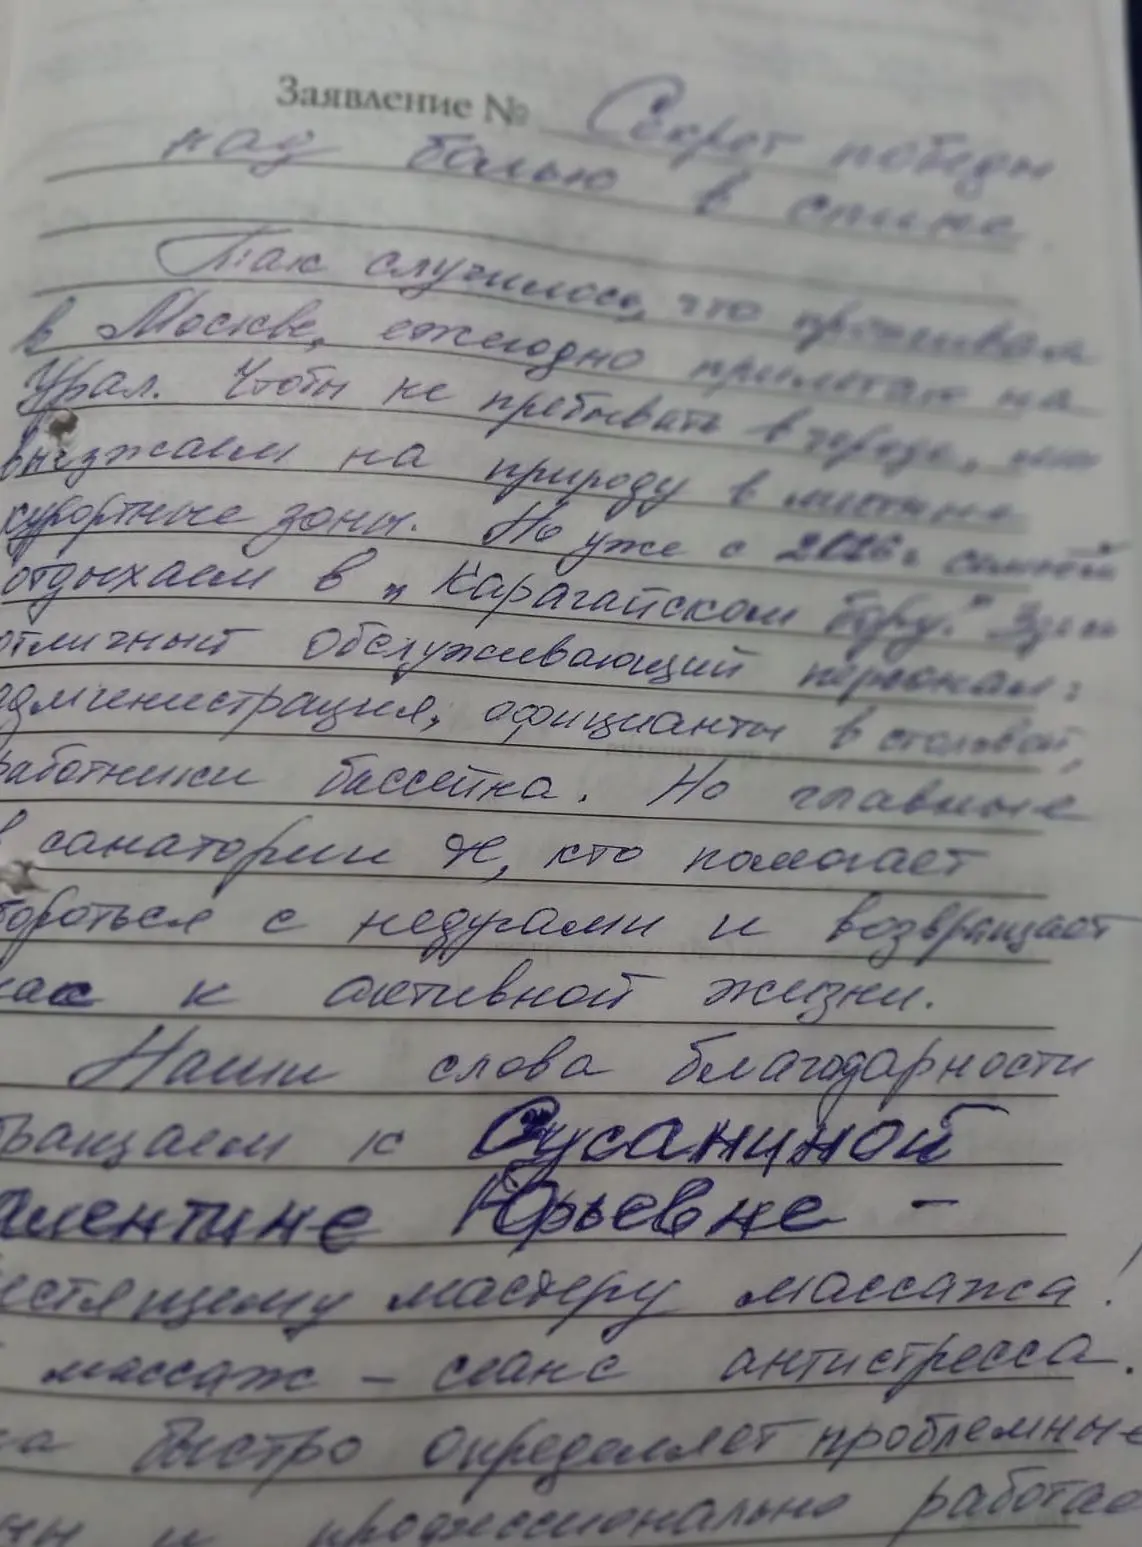 Заявление № Секрет победы
над болью в спине
Так случилось, что проживая
в Москве, ежегодно прилетаю на
Урал. Чтобы не пребывать в городе,
выезжаем на природу в местные
курортные зоны. Но уже с семьёй
отдыхаем в „Карагайском бору." Здесь
отличный обслуживающий персонал:
администрация, официанты в столовой,
работники бассейна. Но главные
в санатории те, кто помогает
бороться с недугами и возвращает
нас к активной жизни.
Наши слова благодарности
обращаем к Сусаниной
алентине Юрьевне –
стящему мастеру массажа!
массаж – сеанс антистресса.
на быстро определяет проблемные
и профессионально работае